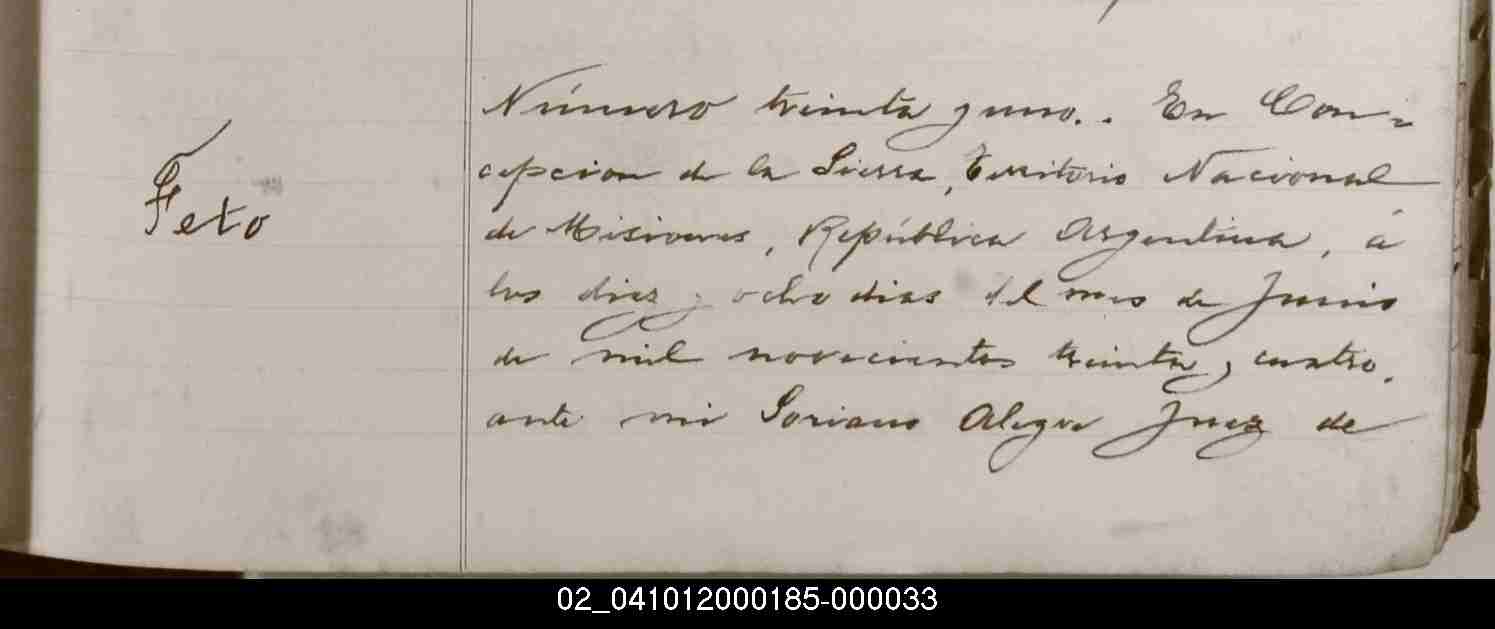 Feto
Número treinta y uno.. En Con-
cepcion de la Sierra, Territorio Nacional
de Misiones, República Argentina, á
los diez y ocho dias del mes de Junio
de mil novecientos treinta y cuatro,
ante mi Soriano Alegre Juez de
02_041012000185-000033